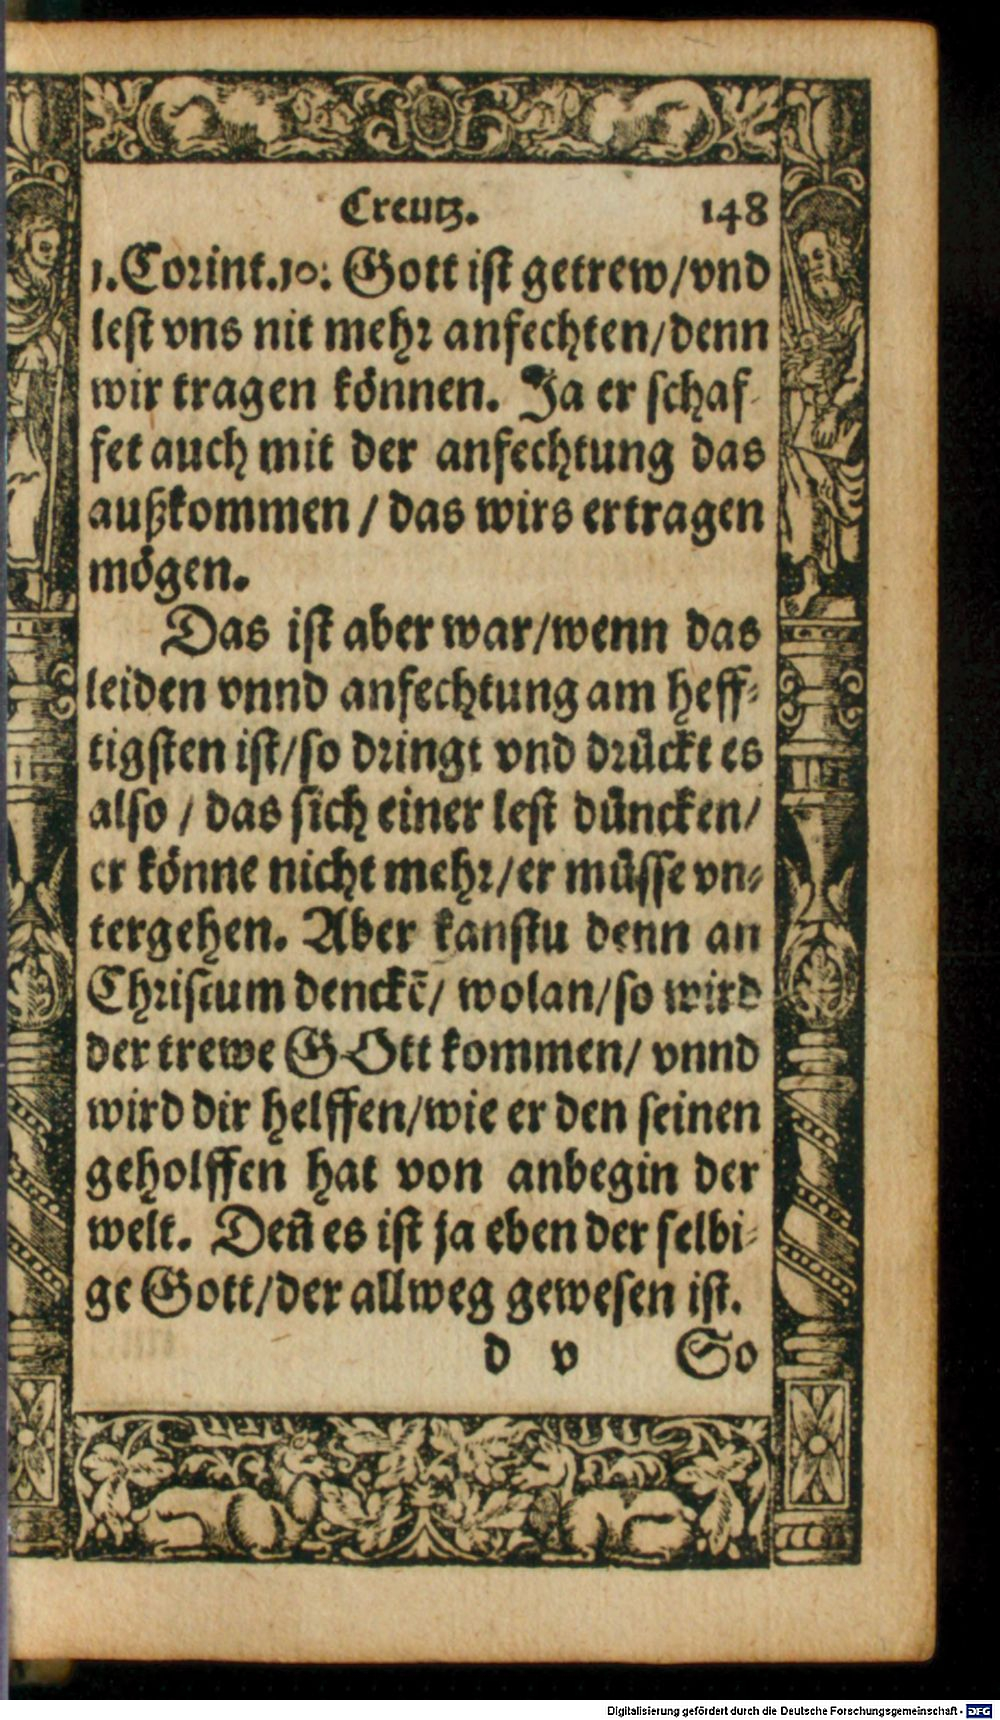 Creutz. 148
1. Corint. 10: Gott ist getrew/vnd
lest vns nit mehr anfechten/denn
wir tragen können. Ja er schaf-
fet auch mit der anfechtung das
außkommen / das wirs ertragen
mögen.
Das ist aber war/wenn das
leiden vnnd anfechtung am heff-
tigsten ist/so dringt vnd drückt es
also / das sich einer lest düncken/
er könne nicht mehr/er müsse vn-
tergehen. Aber kanstu denn an
Christum denckẽ/ wolan/so wird
der trewe GOtt kommen/ vnnd
wird dir helffen/wie er den seinen
geholffen hat von anbegin der
welt. Deñ es ist ja eben der selbi-
ge Gott/der allweg gewesen ist.
d v So
Digitalisierung gefördert durch die Deutsche Forschungsgemeinschaft - DFG